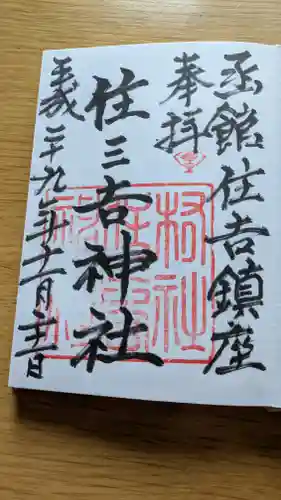 函館住吉鎮座
奉拝
住三吉神社
平成二十九年十一月
村社